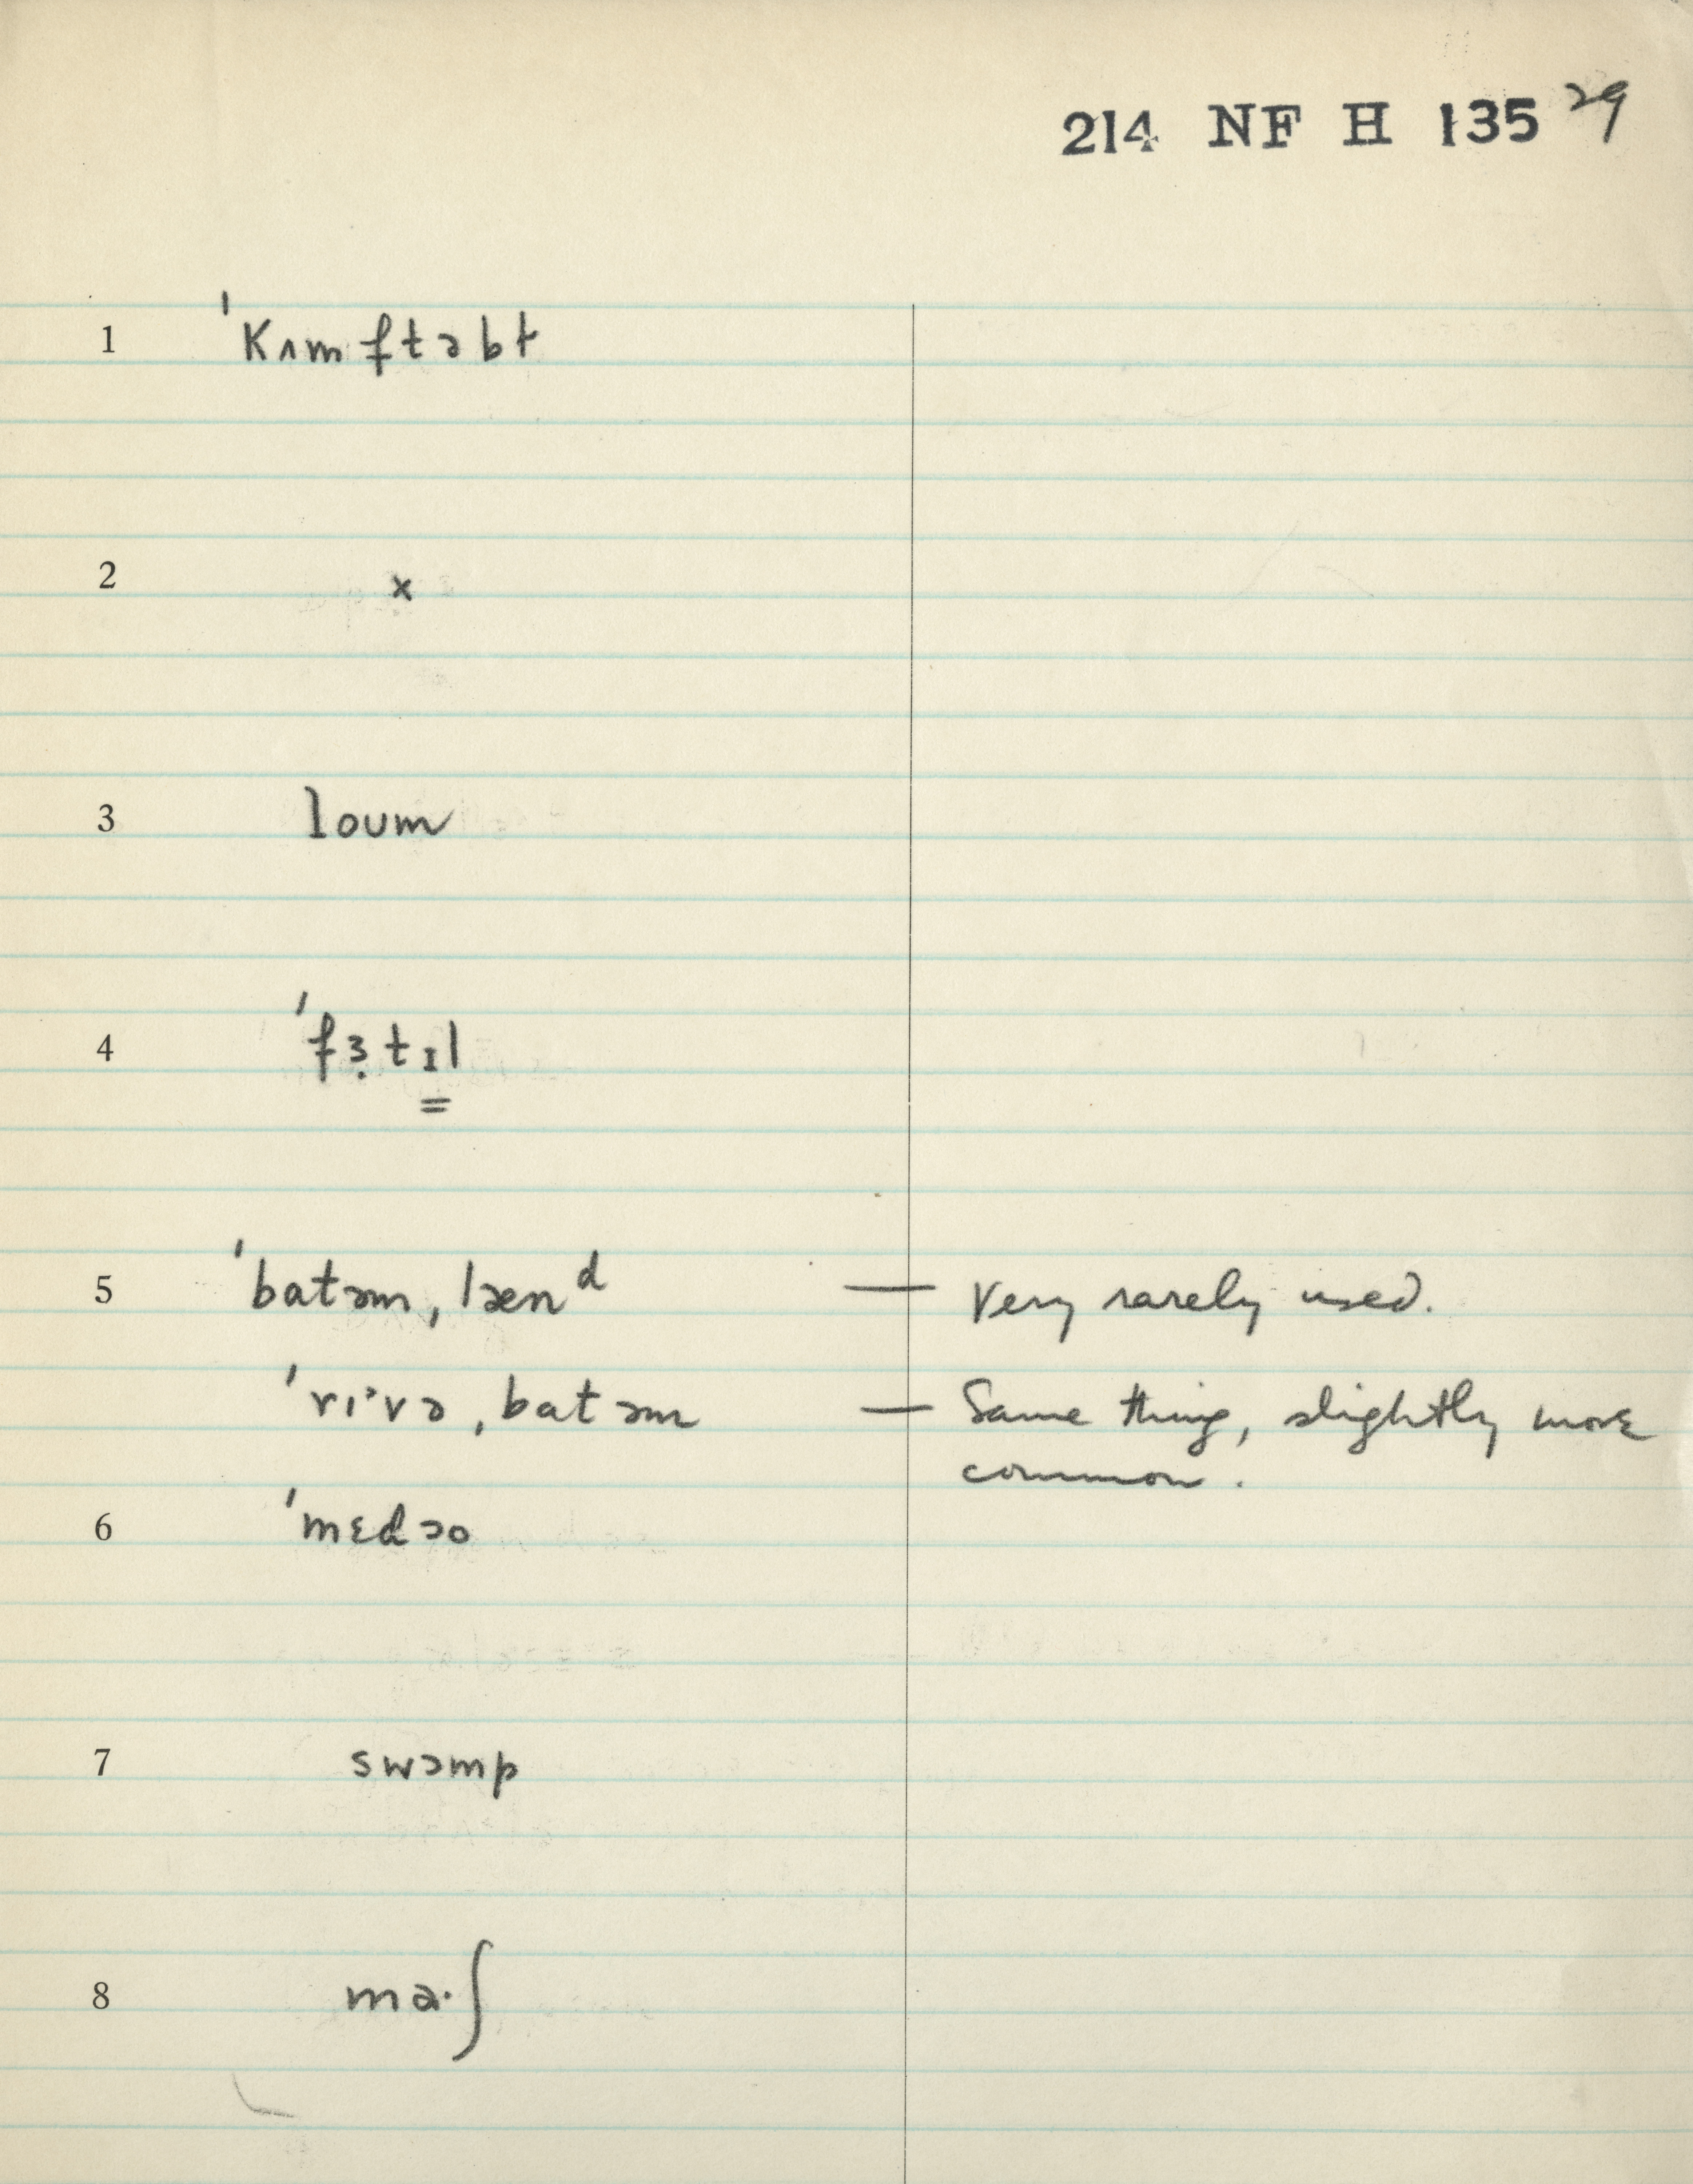 214 NF H 135 29
1 ˈkʌmftəbt
2 x
3 loum
4 ˈfɜ̣tɪ̳l
5 ˈbatəm ˌlænᵈ — Very rarely used.
ˈrɪˑvə ˌbatəm — Same thing, slightly more
common.
6 ˈmɛdəo
7 swɔmp
8 maˑʃ